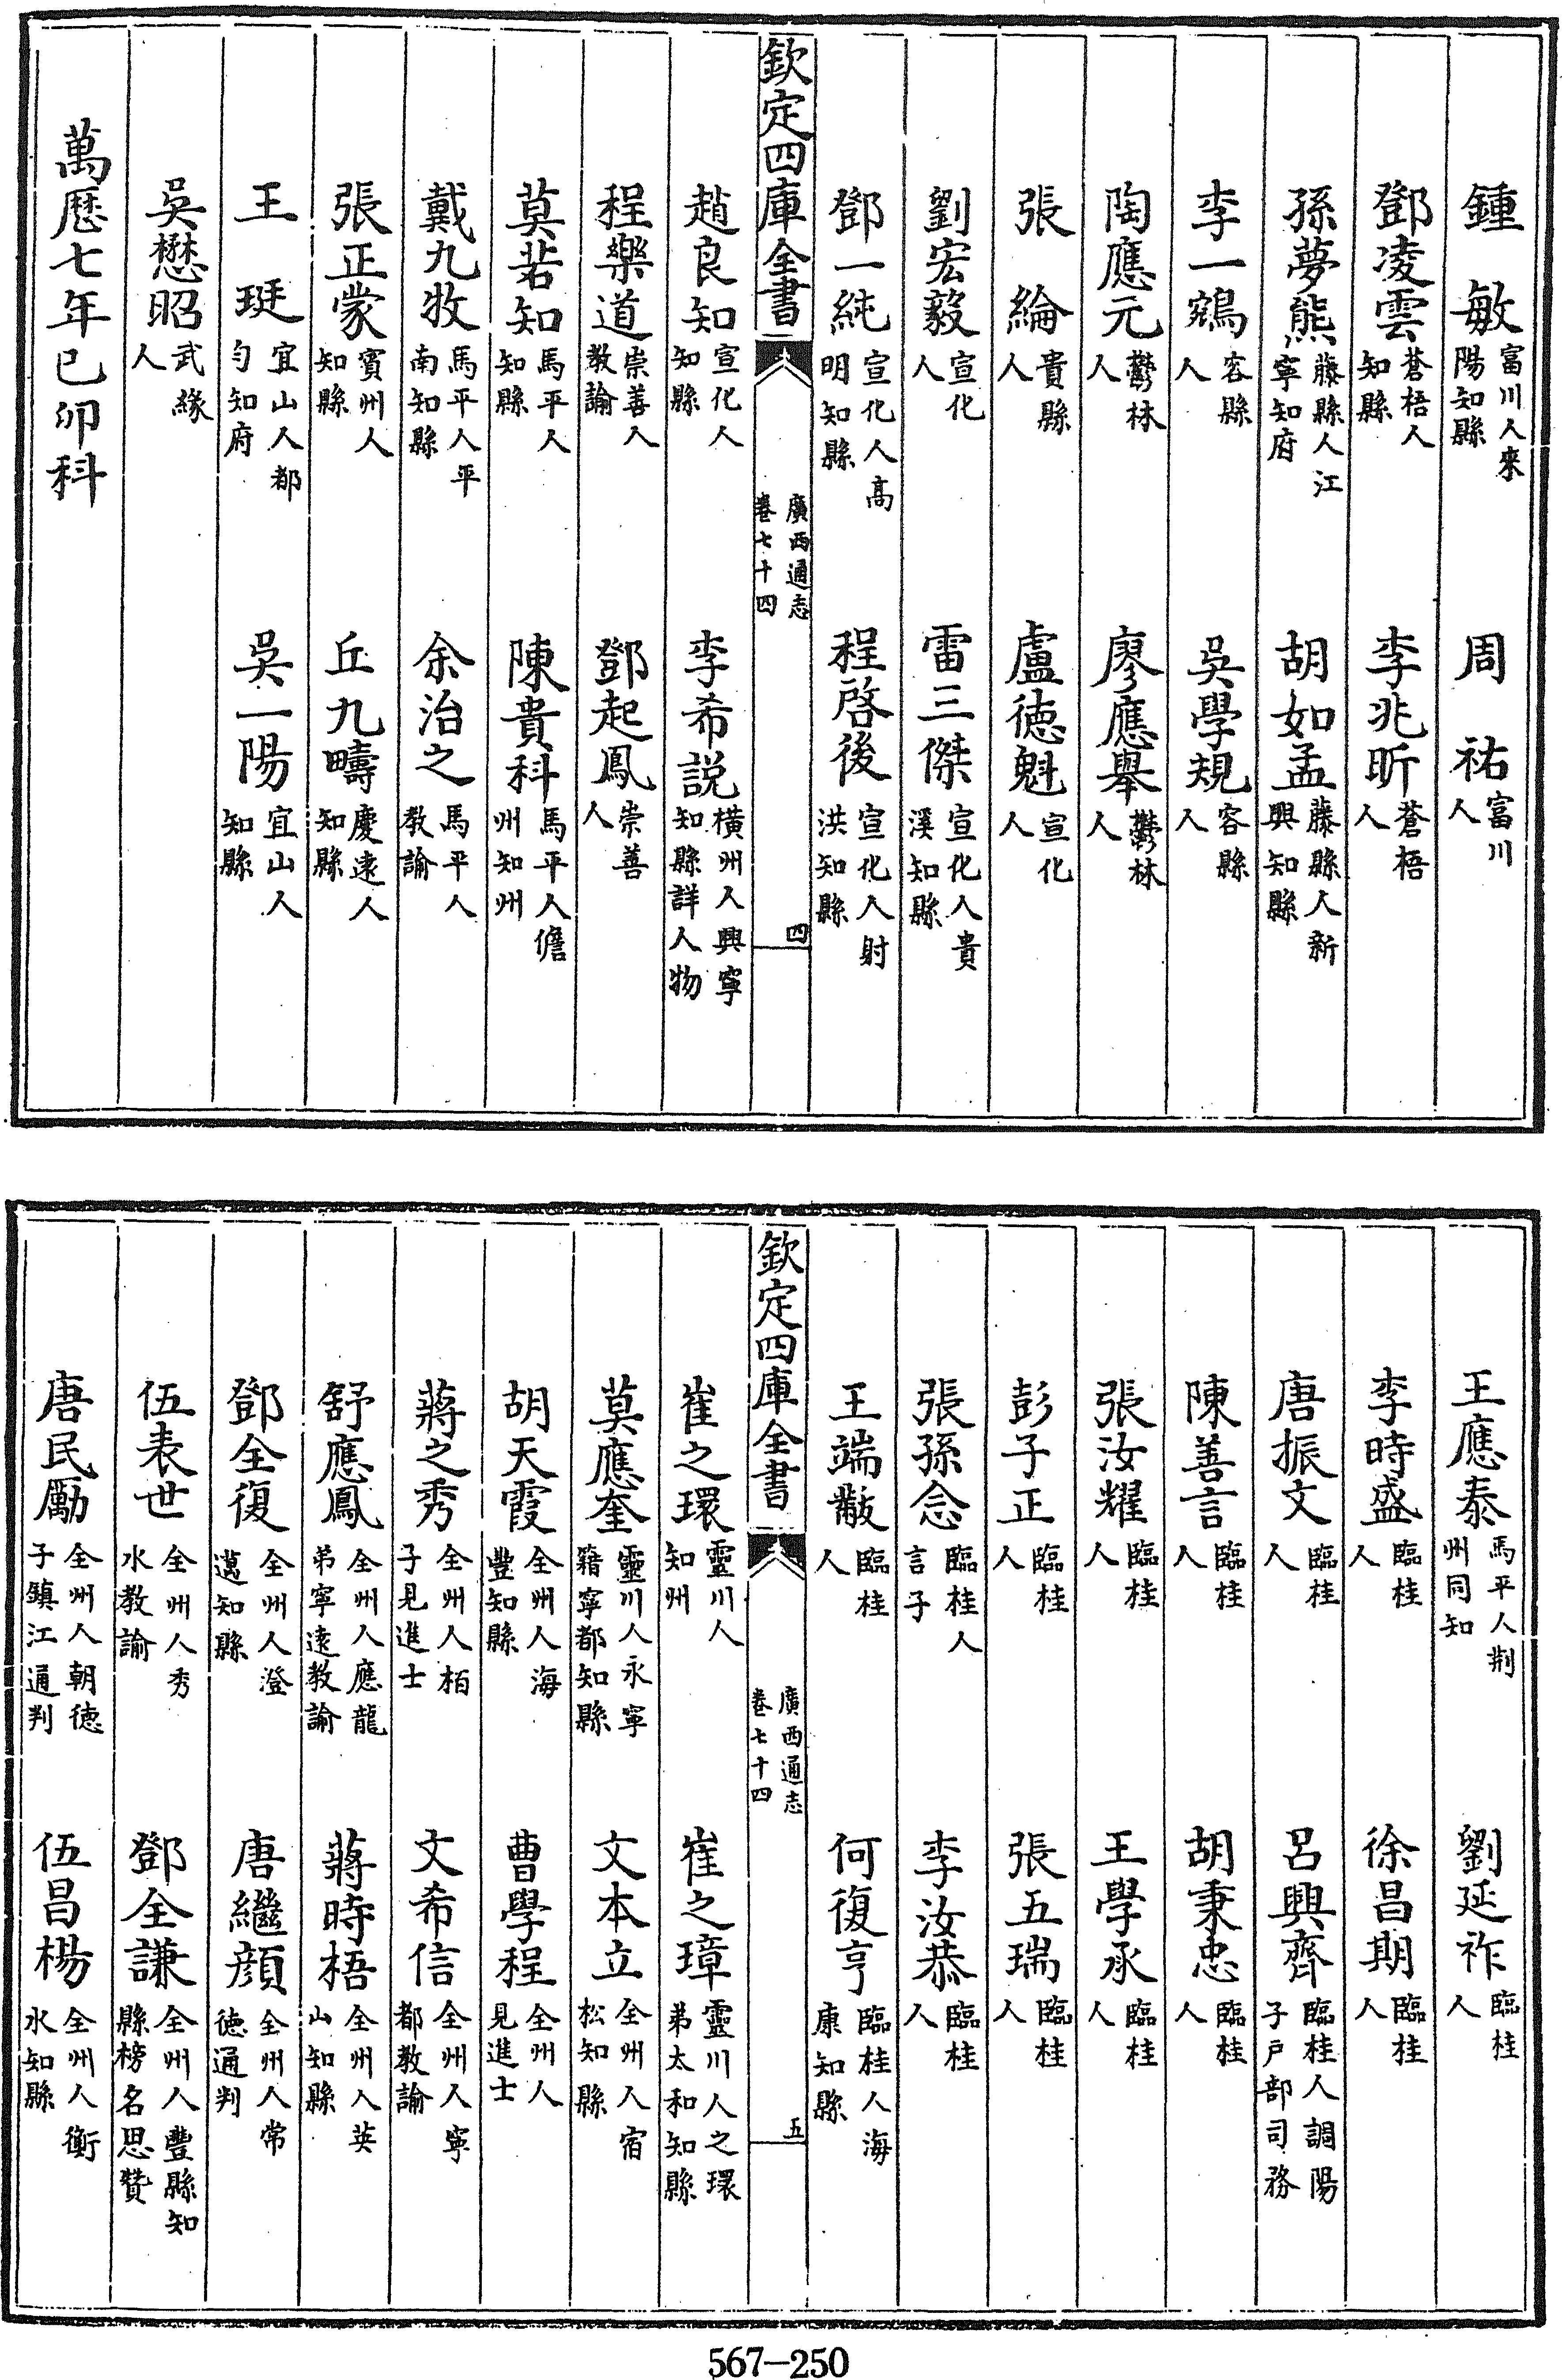 鍾敏富川人來陽知縣　周祐富川人
鄧凌雲蒼梧人知縣　李兆昕蒼梧人
孫夢熊藤縣人江寧知府　胡如孟藤縣人新興知縣
李一鶚容縣人　吳學規容縣人
陶應元鬱林人　廖應舉鬱林人
張綸貴縣人　盧德魁宣化人
劉宏毅宣化人　雷三傑宣化人貴溪知縣
鄧一純宣化人高明知縣　程啓後宣化人射洪知縣
欽定四庫全書　廣西通志卷七十四　四
趙良知宣化人知縣　李希説橫州人興寧知縣詳人物
程樂道崇善人教諭　鄧起鳳崇善人
莫若知馬平人知縣　陳貴科馬平人儋州知州
戴九牧馬平人平南知縣　余治之馬平人教諭
張正蒙賓州人知縣　丘九疇慶逺人知縣
王珽宜山人都勻知府　吳一陽宜山人知縣
吳懋昭武緣人
萬厯七年已卯科
王應泰馬平人荆州同知　劉延祚臨桂人
李時盛臨桂人　徐昌期臨桂人
唐振文臨桂人　呂興齊臨桂人調陽子戸部司務
陳善言臨桂人　胡秉忠臨桂人
張汝耀臨桂人　王學承臨桂人
彭子正臨桂人　張五瑞臨桂人
張孫念臨桂人言子　李汝恭臨桂人
王端黻臨桂人　何復亨臨桂人海康知縣
欽定四庫全書　廣西通志卷七十四　五
崔之環靈川人知州　崔之璋靈川人之環弟太和知縣
莫應奎靈川人永寧籍寧都知縣　文本立全州人宿松知縣
胡天霞全州人海豐知縣　曹學程全州人見進士
蔣之秀全州人栢子見進士　文希信全州人寧都教諭
舒應鳳全州人應龍弟寧逺教諭　蔣時梧全州人英山知縣
鄧全復全州人澄邁知縣　唐繼顔全州人常德通判
伍表世全州人秀水教諭　鄧全謙全州人豐縣知縣榜名思贊
唐民勵全州人朝德子鎮江通判　伍昌楊全州人衡水知縣
567—250